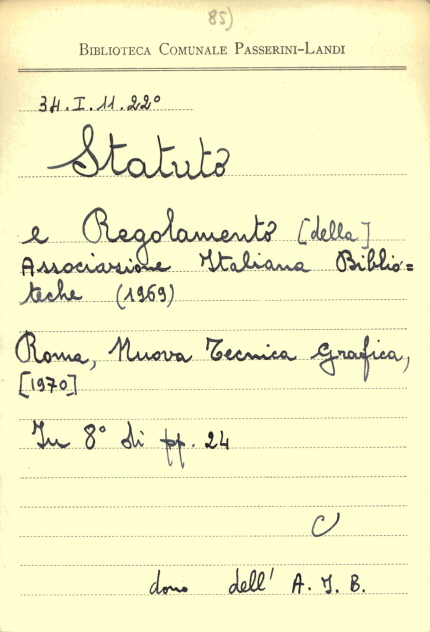 85)
BIBLIOTECA COMUNALE PASSERINI-LANDI
34.I.11.22°
Statuto
e Regolamento [della]
Associazione Italiana Biblio=
teche (1969)
Roma, Nuova Tecnica Grafica,
[1970]
In 8° di pp. 24
C
dono dell' A. I. B.